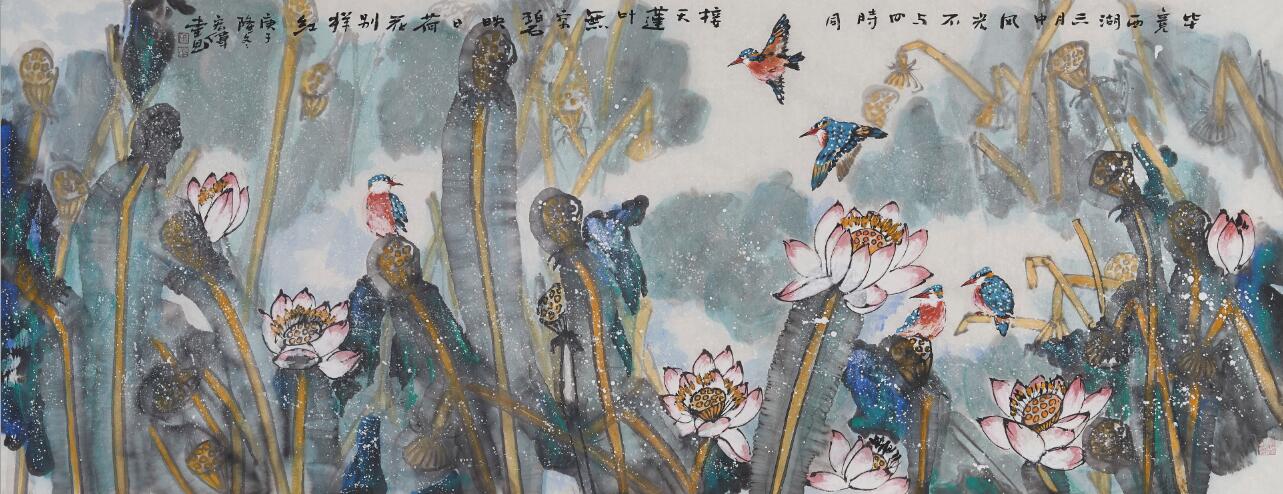 毕竟西湖三月中风光不与四時同
接天蓮叶無穷碧映日荷花别样紅
庚子
隆冬